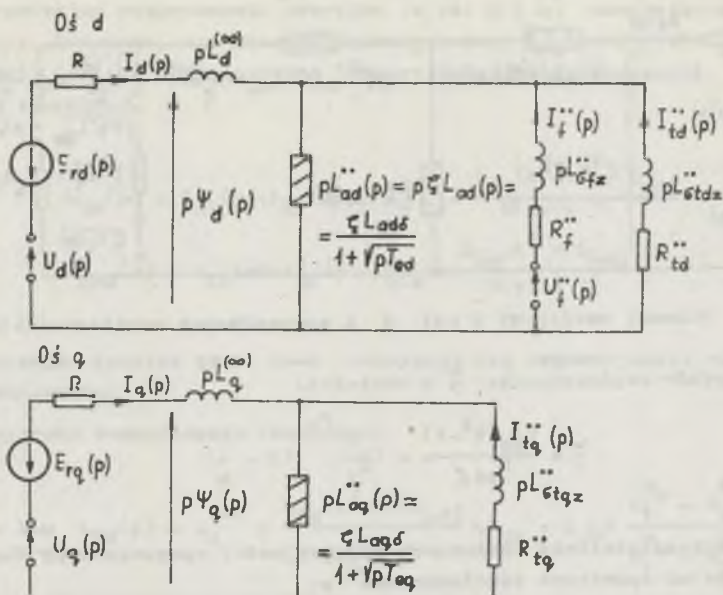 Oś d
R I_d(p) pL_d^(∞)
E_rd(p)
U_d(p)
pΨ_d(p)
pL¨_ad(p) = pζL_ad(p) =
= ζL_adδ / 1+√pT_ed
I¨_f(p)
pL¨_σfz
R¨_f
U¨_f(p)
I¨_td(p)
pL¨_σtdz
R¨_td
Oś q
R I_q(p) pL_q^(∞)
E_rq(p)
U_q(p)
pΨ_q(p)
pL¨_aq(p) ≃
= ζL_aqδ / 1+√pT_eq
I¨_tq(p)
pL¨_σtqz
R¨_tq